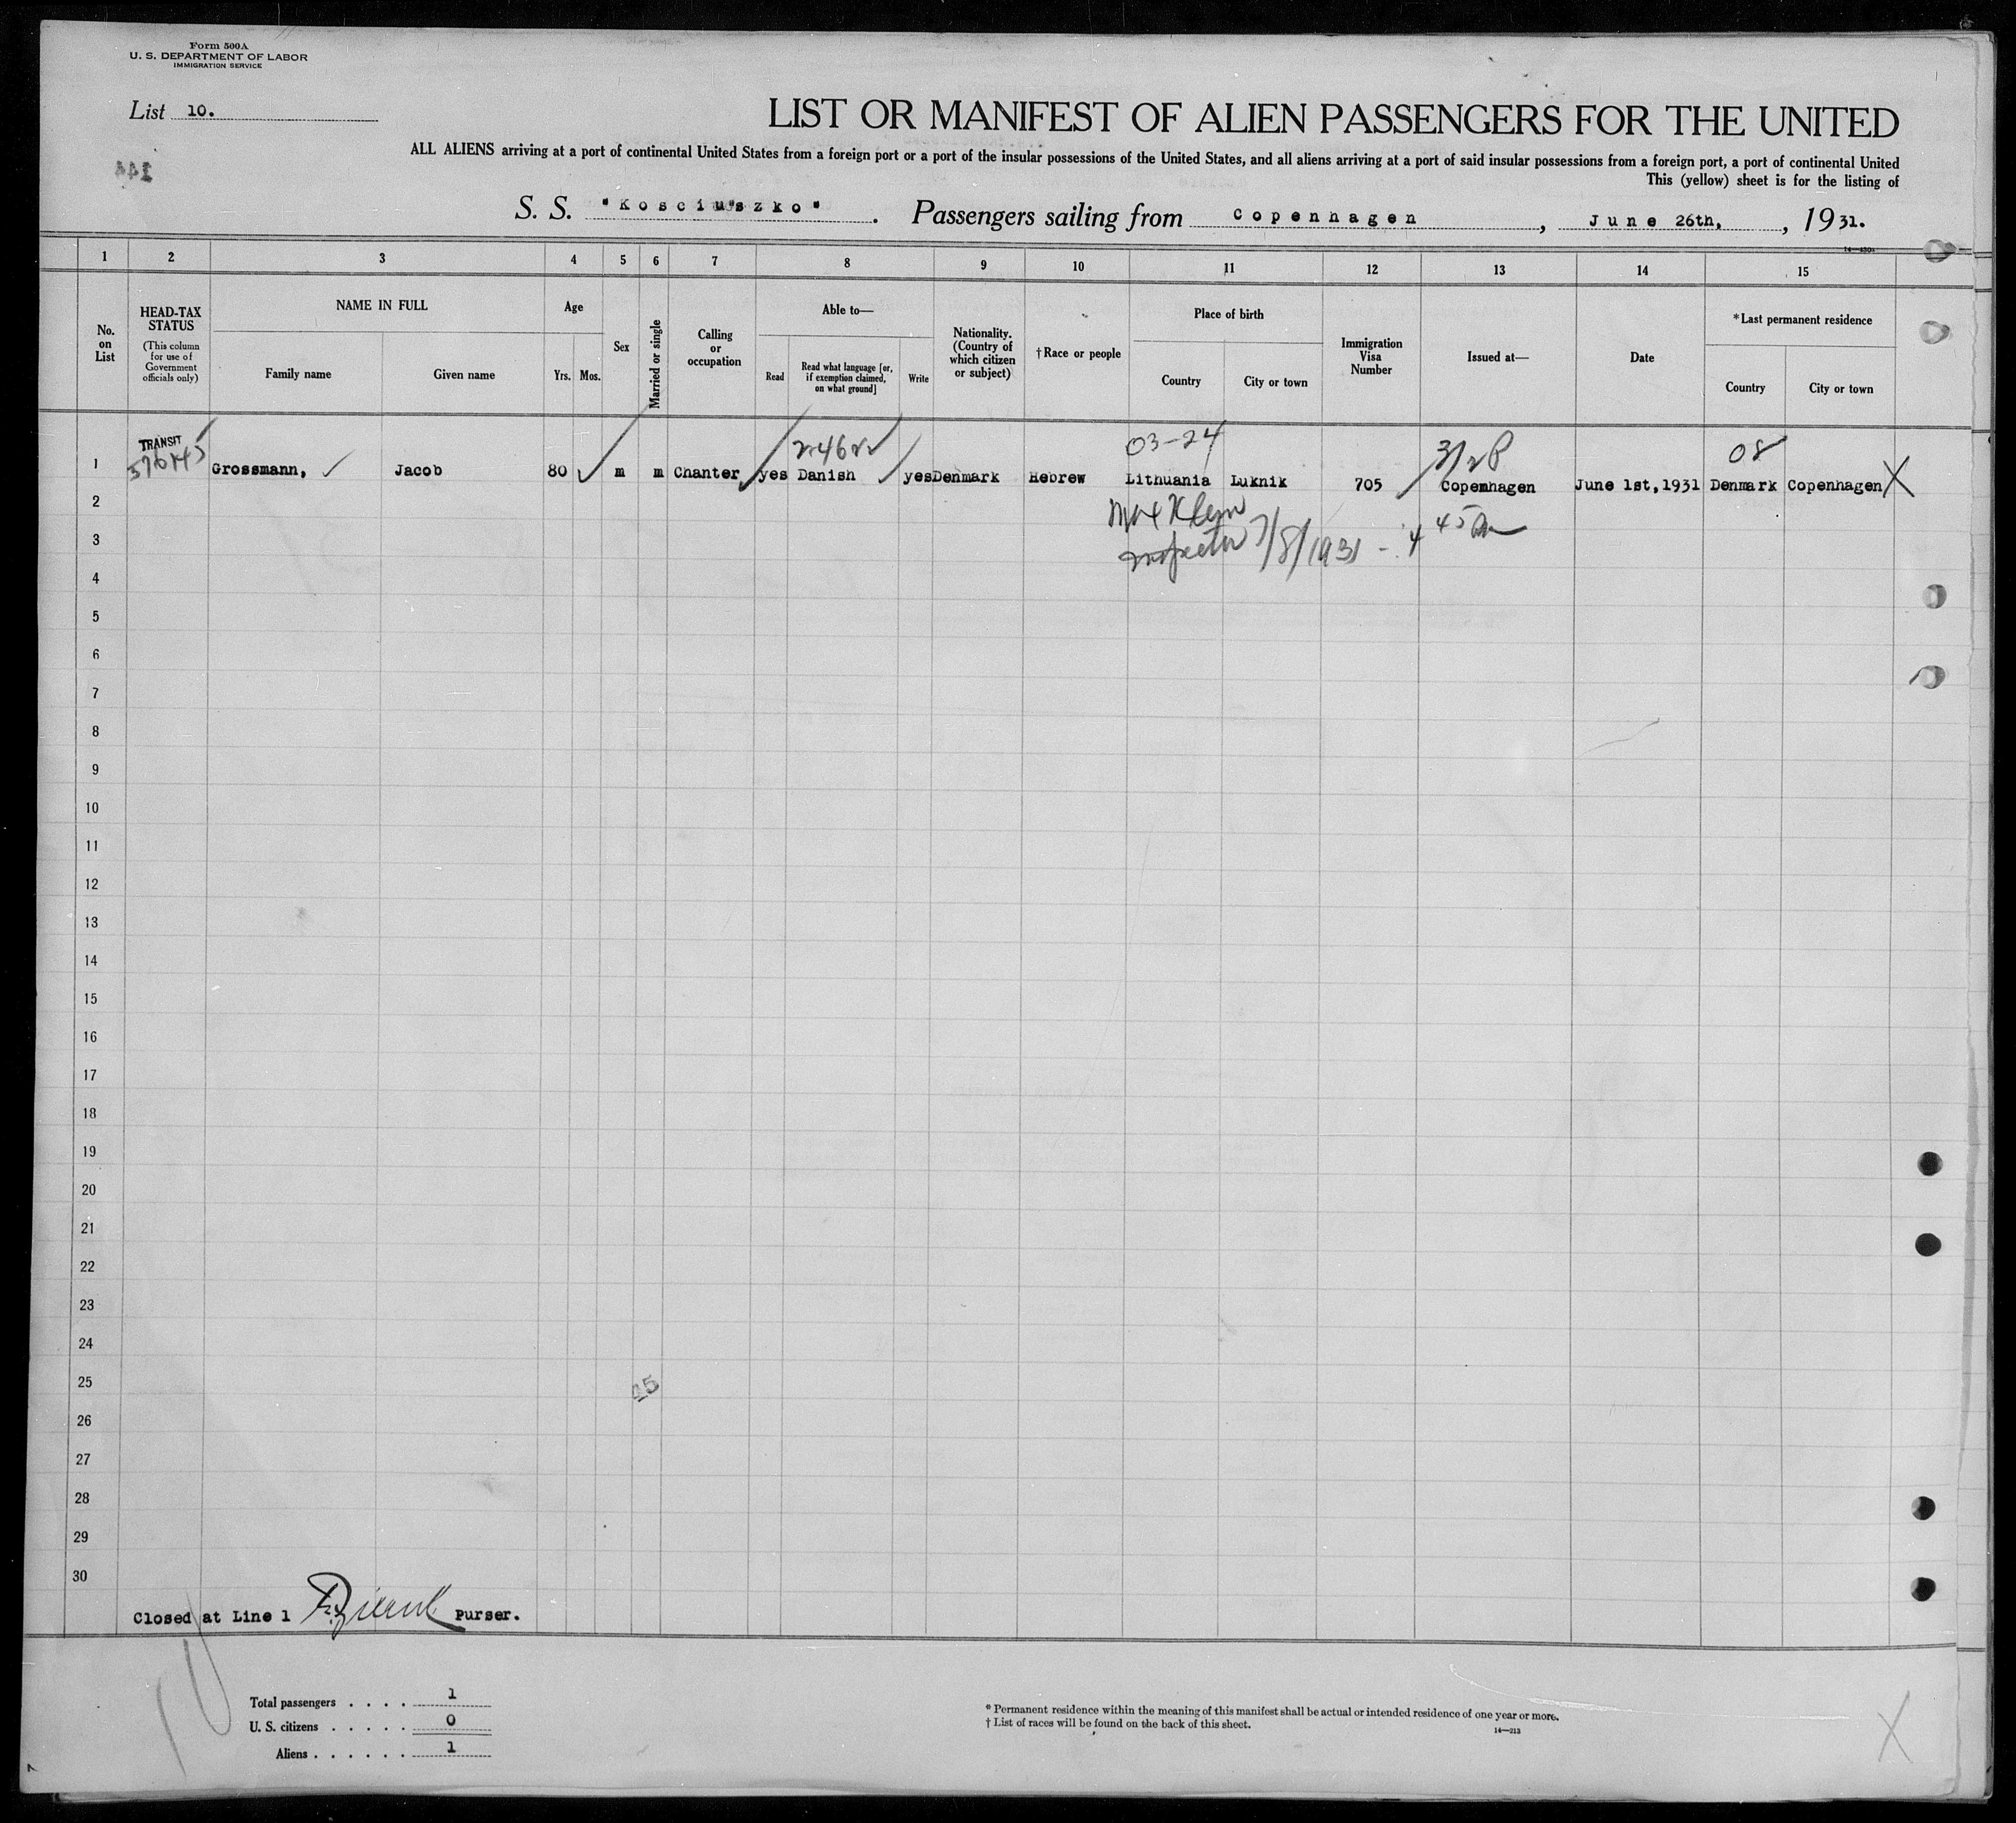 Form 500A
U. S. DEPARTMENT OF LABOR
IMMIGRATION SERVICE
List 10.
LIST OR MANIFEST OF ALIEN PASSENGERS FOR THE UNITED
ALL ALIENS arriving at a port of continental United States from a foreign port or a port of the insular possessions of the United States, and all aliens arriving at a port of said insular possessions from a foreign port, a port of continental United
This (yellow) sheet is for the listing of
144
S. S. "Kosciuszko". Passengers sailing from Copenhagen, June 26th, 1931.
1 2 3 4 5 6 7 8 9 10 11 12 13 14 15
No. on List
HEAD-TAX STATUS
(This column for use of Government officials only)
NAME IN FULL
Family name
Given name
Age
Yrs. Mos.
Sex
Married or single
Calling or occupation
Able to—
Read
Read what language [or, if exemption claimed, on what ground]
Write
Nationality. (Country of which citizen or subject)
†Race or people
Place of birth
Country
City or town
Immigration Visa Number
Issued at—
Date
*Last permanent residence
Country
City or town
TRANSIT
03-24
08
1 Grossmann, Jacob 80 m m Chanter yes Danish yes Denmark Hebrew Lithuania Luknik 705 Copenhagen June 1st, 1931 Denmark Copenhagen X
Max Klein
Inspector 7/8/1931 -
2
3
4
5
6
7
8
9
10
11
12
13
14
15
16
17
18
19
20
21
22
23
24
25
26
27
28
29
30
Closed at Line 1 Purser.
10
Total passengers . . . . 1
U. S. citizens . . . . . 0
Aliens . . . . . . 1
* Permanent residence within the meaning of this manifest shall be actual or intended residence of one year or more.
† List of races will be found on the back of this sheet.
14—213
X